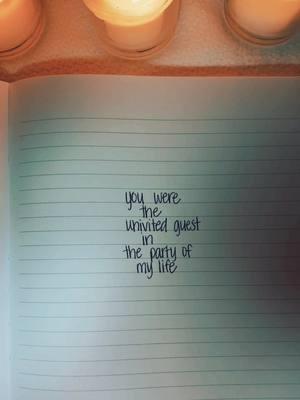 you were
the
univited guest
in
the party of
my life